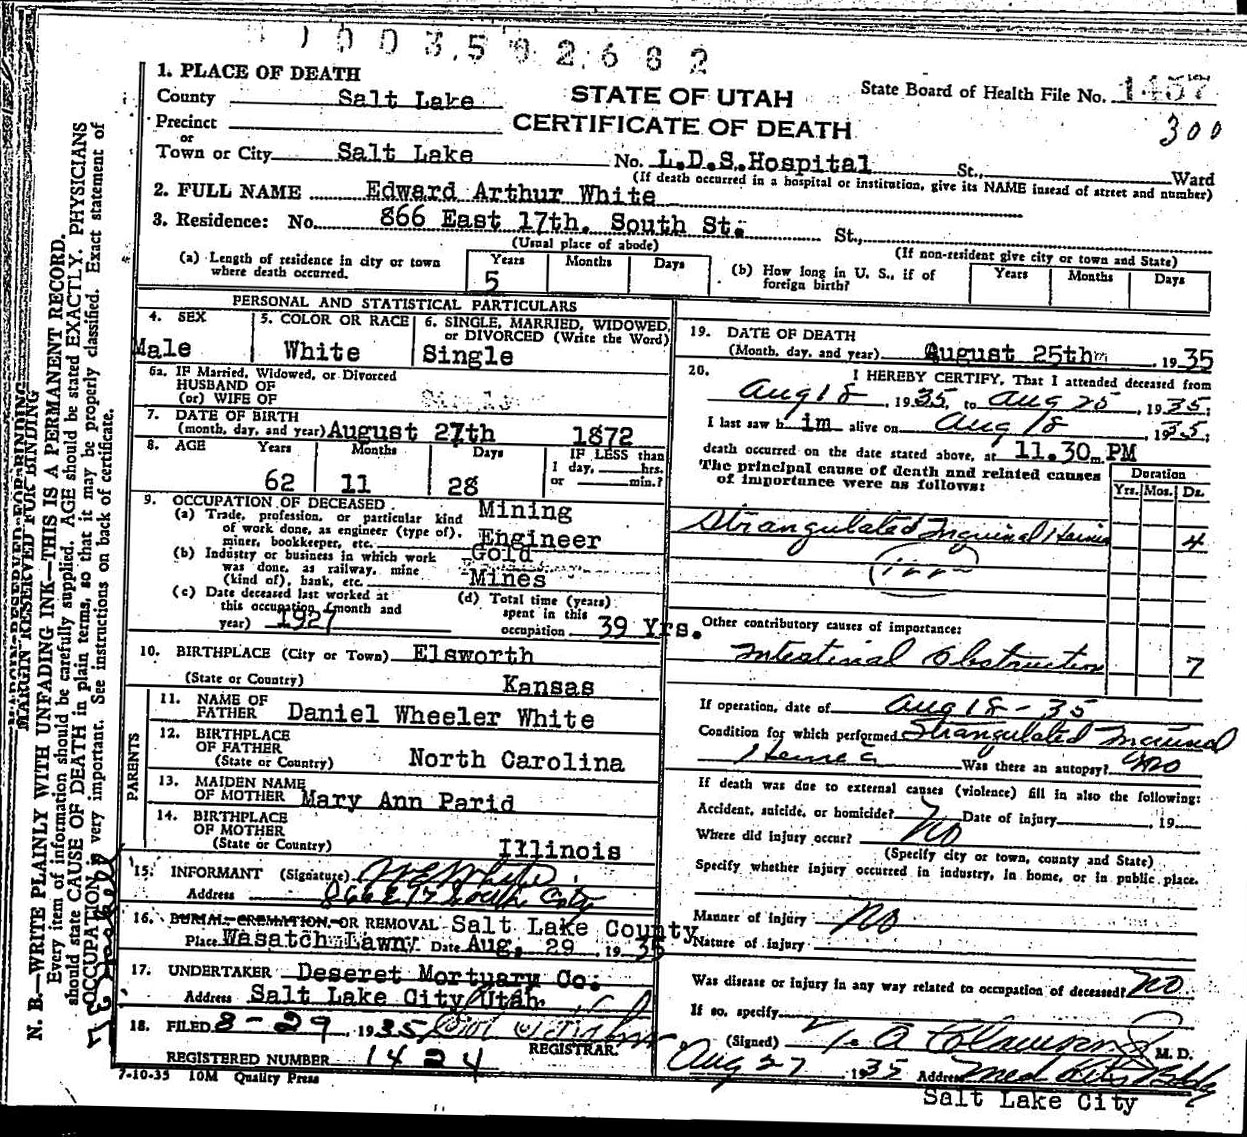 0003502682
1. PLACE OF DEATH
County Salt Lake
STATE OF UTAH
CERTIFICATE OF DEATH
State Board of Health File No. 1457
300
Precinct
or
Town or City Salt Lake No. L.D.S. Hospital St., Ward
(If death occurred in a hospital or institution, give its NAME instead of street and number)
2. FULL NAME Edward Arthur White
3. Residence: No. 866 East 17th. South St. St.,
(Usual place of abode) (If non-resident give city or town and State)
(a) Length of residence in city or town where death occurred. Years 5 Months Days
(b) How long in U. S., if of foreign birth? Years Months Days
PERSONAL AND STATISTICAL PARTICULARS
4. SEX Male
5. COLOR OR RACE White
6. SINGLE, MARRIED, WIDOWED, or DIVORCED (Write the Word) Single
6a. IF Married, Widowed, or Divorced
HUSBAND OF
(or) WIFE OF
7. DATE OF BIRTH
(month, day, and year) August 27th 1872
8. AGE Years 62 Months 11 Days 28 IF LESS than 1 day, hrs. or min.?
9. OCCUPATION OF DECEASED
(a) Trade, profession, or particular kind of work done, as engineer (type of), miner, bookkeeper, etc. Mining Engineer
(b) Industry or business in which work was done, as railway, mine (kind of), bank, etc. Gold Mines
(c) Date deceased last worked at this occupation (month and year) 1927
(d) Total time (years) spent in this occupation 39 Yrs.
10. BIRTHPLACE (City or Town) Elsworth
(State or Country) Kansas
PARENTS
11. NAME OF FATHER Daniel Wheeler White
12. BIRTHPLACE OF FATHER (State or Country) North Carolina
13. MAIDEN NAME OF MOTHER Mary Ann Parid
14. BIRTHPLACE OF MOTHER (State or Country) Illinois
15. INFORMANT (Signature) White
Address 866 E 17 South City
16. BURIAL, CREMATION, OR REMOVAL Salt Lake County
Place Wasatch Lawn Date Aug. 29, 1935
17. UNDERTAKER Deseret Mortuary Co.
Address Salt Lake City Utah.
18. FILED 8-29, 1935
REGISTRAR.
REGISTERED NUMBER 1424
7-10-35 10M Quality Press
19. DATE OF DEATH
(Month, day, and year) August 25th, 1935
20. I HEREBY CERTIFY, That I attended deceased from
Aug 18, 1935, to Aug 25, 1935;
I last saw him alive on Aug 18, 1935;
death occurred on the date stated above, at 11.30m PM
The principal cause of death and related causes of importance were as follows:
Duration
Yrs. Mos. Ds.
Strangulated Inguinal Hernia 4
Other contributory causes of importance:
Intestinal Obstruction 7
If operation, date of Aug 18-35
Condition for which performed Strangulated Inguinal
Hernia Was there an autopsy? No
If death was due to external causes (violence) fill in also the following:
Accident, suicide, or homicide? No Date of injury , 19
Where did injury occur?
(Specify city or town, county and State)
Specify whether injury occurred in industry, in home, or in public place.
Manner of injury No
Nature of injury
Was disease or injury in any way related to occupation of deceased? No
If so, specify
(Signed) M. D.
Aug 27 1935 Address Med Arts Bldg
Salt Lake City
MARGIN RESERVED FOR BINDING
N. B.—WRITE PLAINLY WITH UNFADING INK—THIS IS A PERMANENT RECORD.
Every item of information should be carefully supplied. AGE should be stated EXACTLY. PHYSICIANS
should state CAUSE OF DEATH in plain terms, so that it may be properly classified. Exact statement of
OCCUPATION is very important. See instructions on back of certificate.